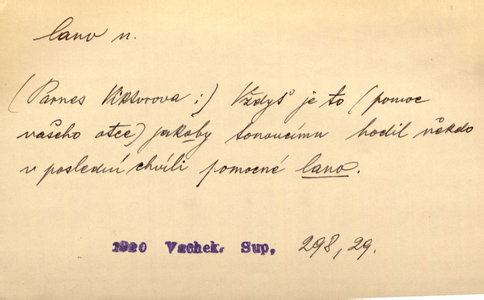 lano n.
(Parnes Viktorova:) Vždyť je to (pomoc
vašeho otce) jakoby tonoucímu hodil někdo
v poslední chvíli pomocné lano.
1920 Vachek. Sup, 298,29.